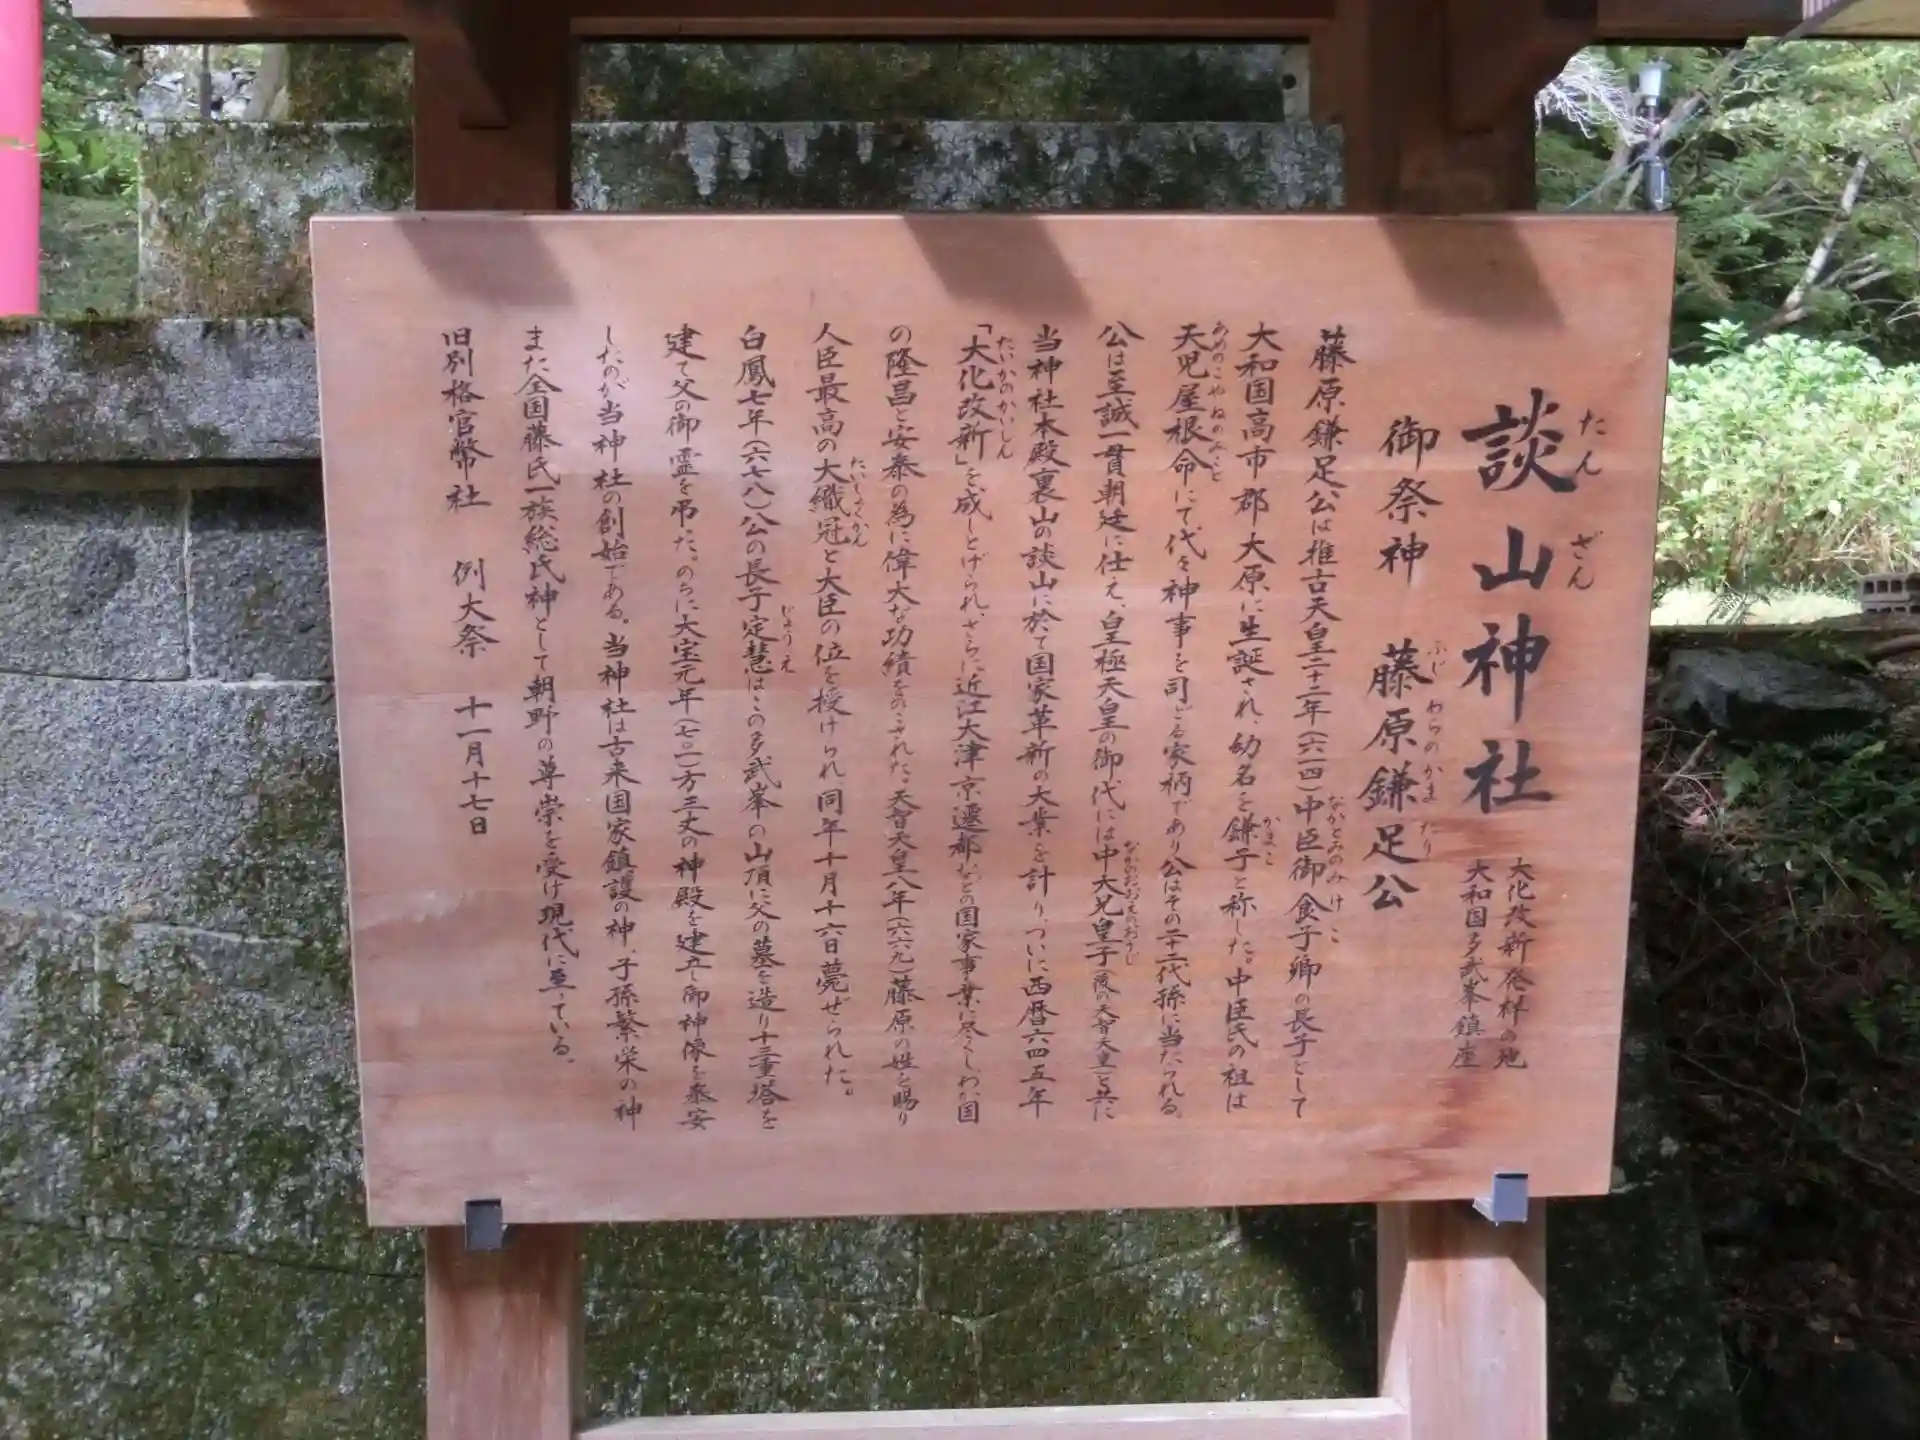 談山神社
たんざん
大化改新発祥の地
大和国多武峯鎮座
御祭神　藤原鎌足公
ふじわらのかまたり
藤原鎌足公は推古天皇二十二年（六一四）中臣御食子卿の長子として
なかとみのみけこ
大和国高市郡大原に生誕され、幼名を鎌子と称した。中臣氏の祖は
かまこ
天児屋根命にて代々神事を司どる家柄であり公はその二十二代孫に当たられる。
あめのこやねのみこと
公は至誠一貫朝廷に仕え、皇極天皇の御代には中大兄皇子（後の天智天皇）と共に
なかのおおえのおうじ
当神社本殿裏山の談山に於て国家革新の大業を計り、ついに西暦六四五年
「大化改新」を成しとげられ、さらに近江大津京遷都などの国家事業に尽くしわが国
たいかのかいしん
の隆昌と安泰の為に偉大な功績をのこされた。天智天皇八年（六六九）藤原の姓を賜り
人臣最高の大織冠と大臣の位を授けられ同年十月十六日薨ぜられた。
たいしょくかん
白鳳七年（六七八）公の長子定慧はこの多武峯の山頂に父の墓を造り十三重塔を
じょうえ
建て父の御霊を弔った。のちに大宝元年（七〇一）方三丈の神殿を建立し御神像を奉安
したのが当神社の創始である。当神社は古来国家鎮護の神、子孫繁栄の神
また全国藤氏一族総氏神として朝野の尊崇を受け現代に至っている。
旧別格官幣社　例大祭　十一月十七日